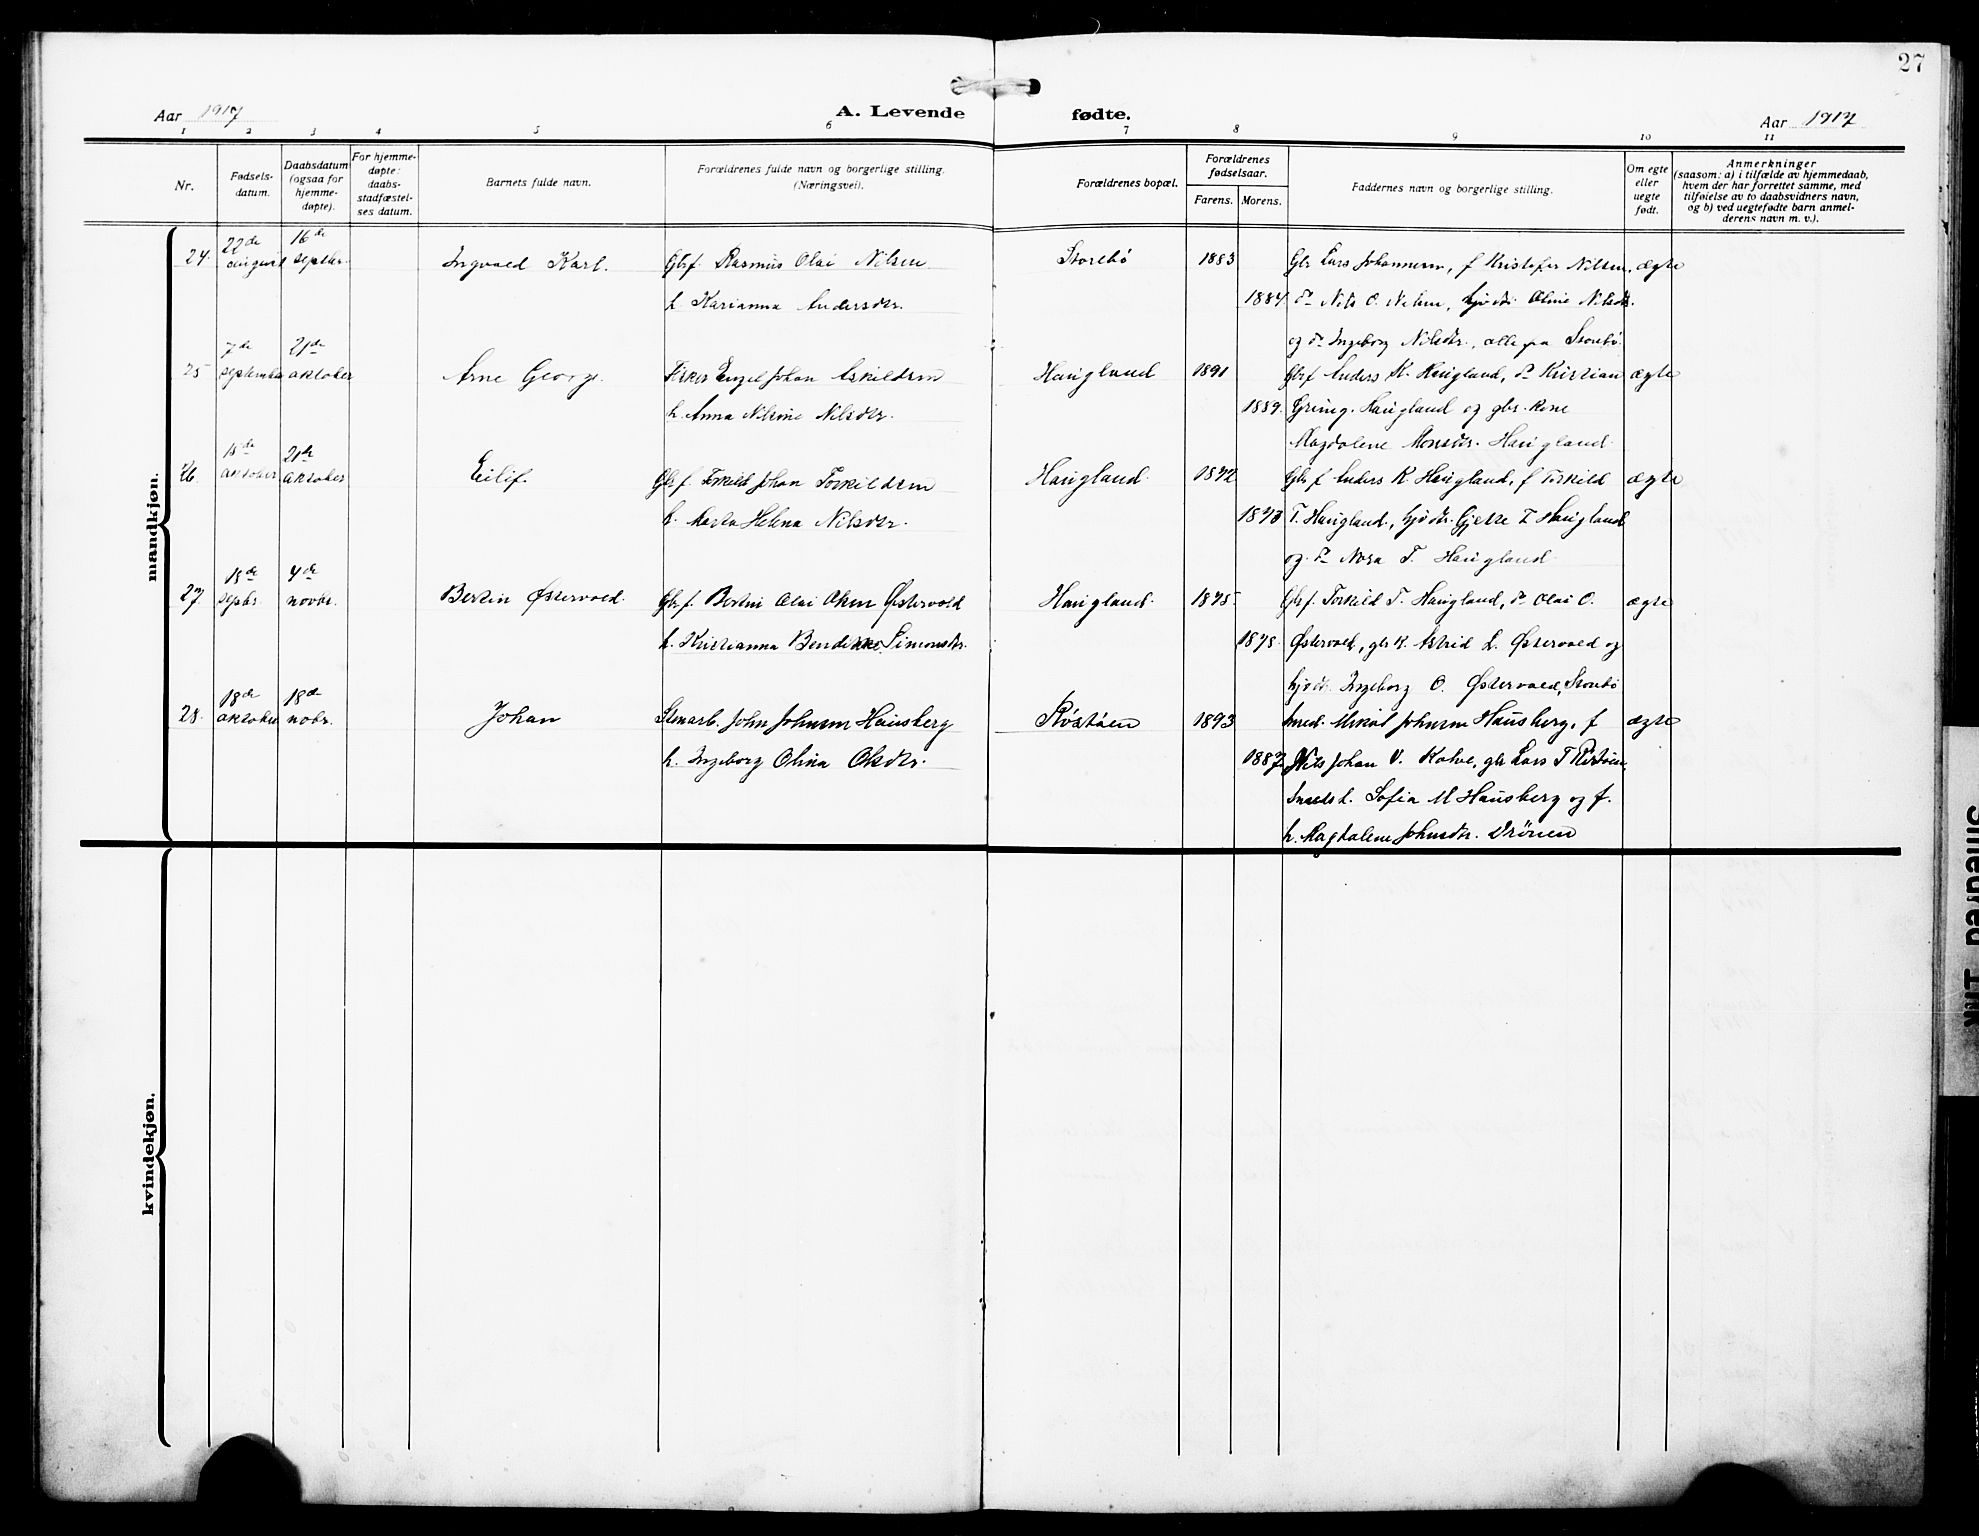 27
Aar 1917
A. Levende fødte.
Aar 1917
1 2 3 4 5 6 7 8 9 10 11
Nr.
Fødsels-
datum.
Daabsdatum
(ogsaa for
hjemme-
døpte).
For hjemme-
døpte:
daabs-
stadfæstel-
ses datum.
Barnets fulde navn.
Forældrenes fulde navn og borgerlige stilling.
(Næringsvei).
Forældrenes bopæl.
Forældrenes
fødselsaar.
Farens. Morens.
Faddernes navn og borgerlige stilling.
Om egte
eller
uegte
født.
Anmerkninger
(saasom: a) i tilfælde av hjemmedaab,
hvem der har forrettet samme, med
tilføielse av to daabsvidners navn,
og b) ved uegtefødte barn anmel-
derens navn m. v.).
mandkjøn.
22de 16de
24. august septbr. Ingvald Karl. Gbrf. Rasmus Olai Nilsen Storebø 1883 Gbr Lars Johannesen, f Kristofer Nilsen, ægte
h. Karianna Andersdtr. 1884 do Nils O. Nilsen, Oline Nilsdtr.
og do Ingeborg Nilsdtr., alle fra Storebø
7de 21de
25 september oktober Arne Georg. Fisker Engel Johan Askildsen Haugland 1891 Gbrf Anders K. Haugland, do Kristian ægte
h. Anna Nilsine Nilsdtr. 1889. Grimg. Haugland og gbr. kone
Magdalene Monsdtr. Haugland
15de 21de
26. oktober oktober Eilif. Gbrf. Torkild Johan Torkildsen Haugland 1872 Gbr f Anders K. Haugland, f Torkild ægte
h. Marta Helena Nilsdtr. 1873 T. Haugland, Gjette T Haugland
og do Nora T. Haugland
18de 4de
27. septbr. novbr. Bertin Østervold. Gbrf. Bertin Olai Olsen Østervold Haugland 1875 Gbrf. Torkild T. Haugland, do Olai O. ægte
h. Kristianna Bendikke Simonsdtr. 1878. Østervold, gbr k. Astrid L. Østervold og
Ingeborg O. Østervold, Storebø
18de 18de
28. oktober nobr. Johan Stenarb. John Johnsen Hausberg Røstøen 1893 Smed. Mikal Johnsen Hausberg, f ægte
h. Ingeborg Olina Olsdtr. 1887. Nils Johan V. Kalve, gbr Lars T Røstøen
Smeds h. Sofia M Hausberg og f.
h. Magdalene Johnsdtr. Drönen
kvindekjøn.